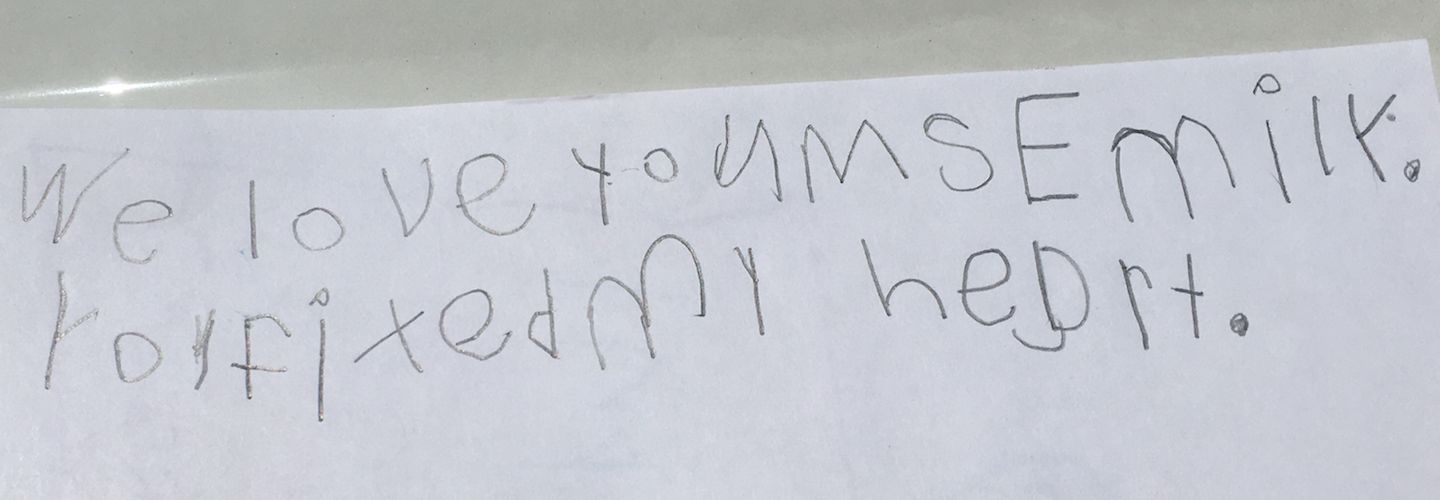 We love you ms Emily.
You fixed my heart.